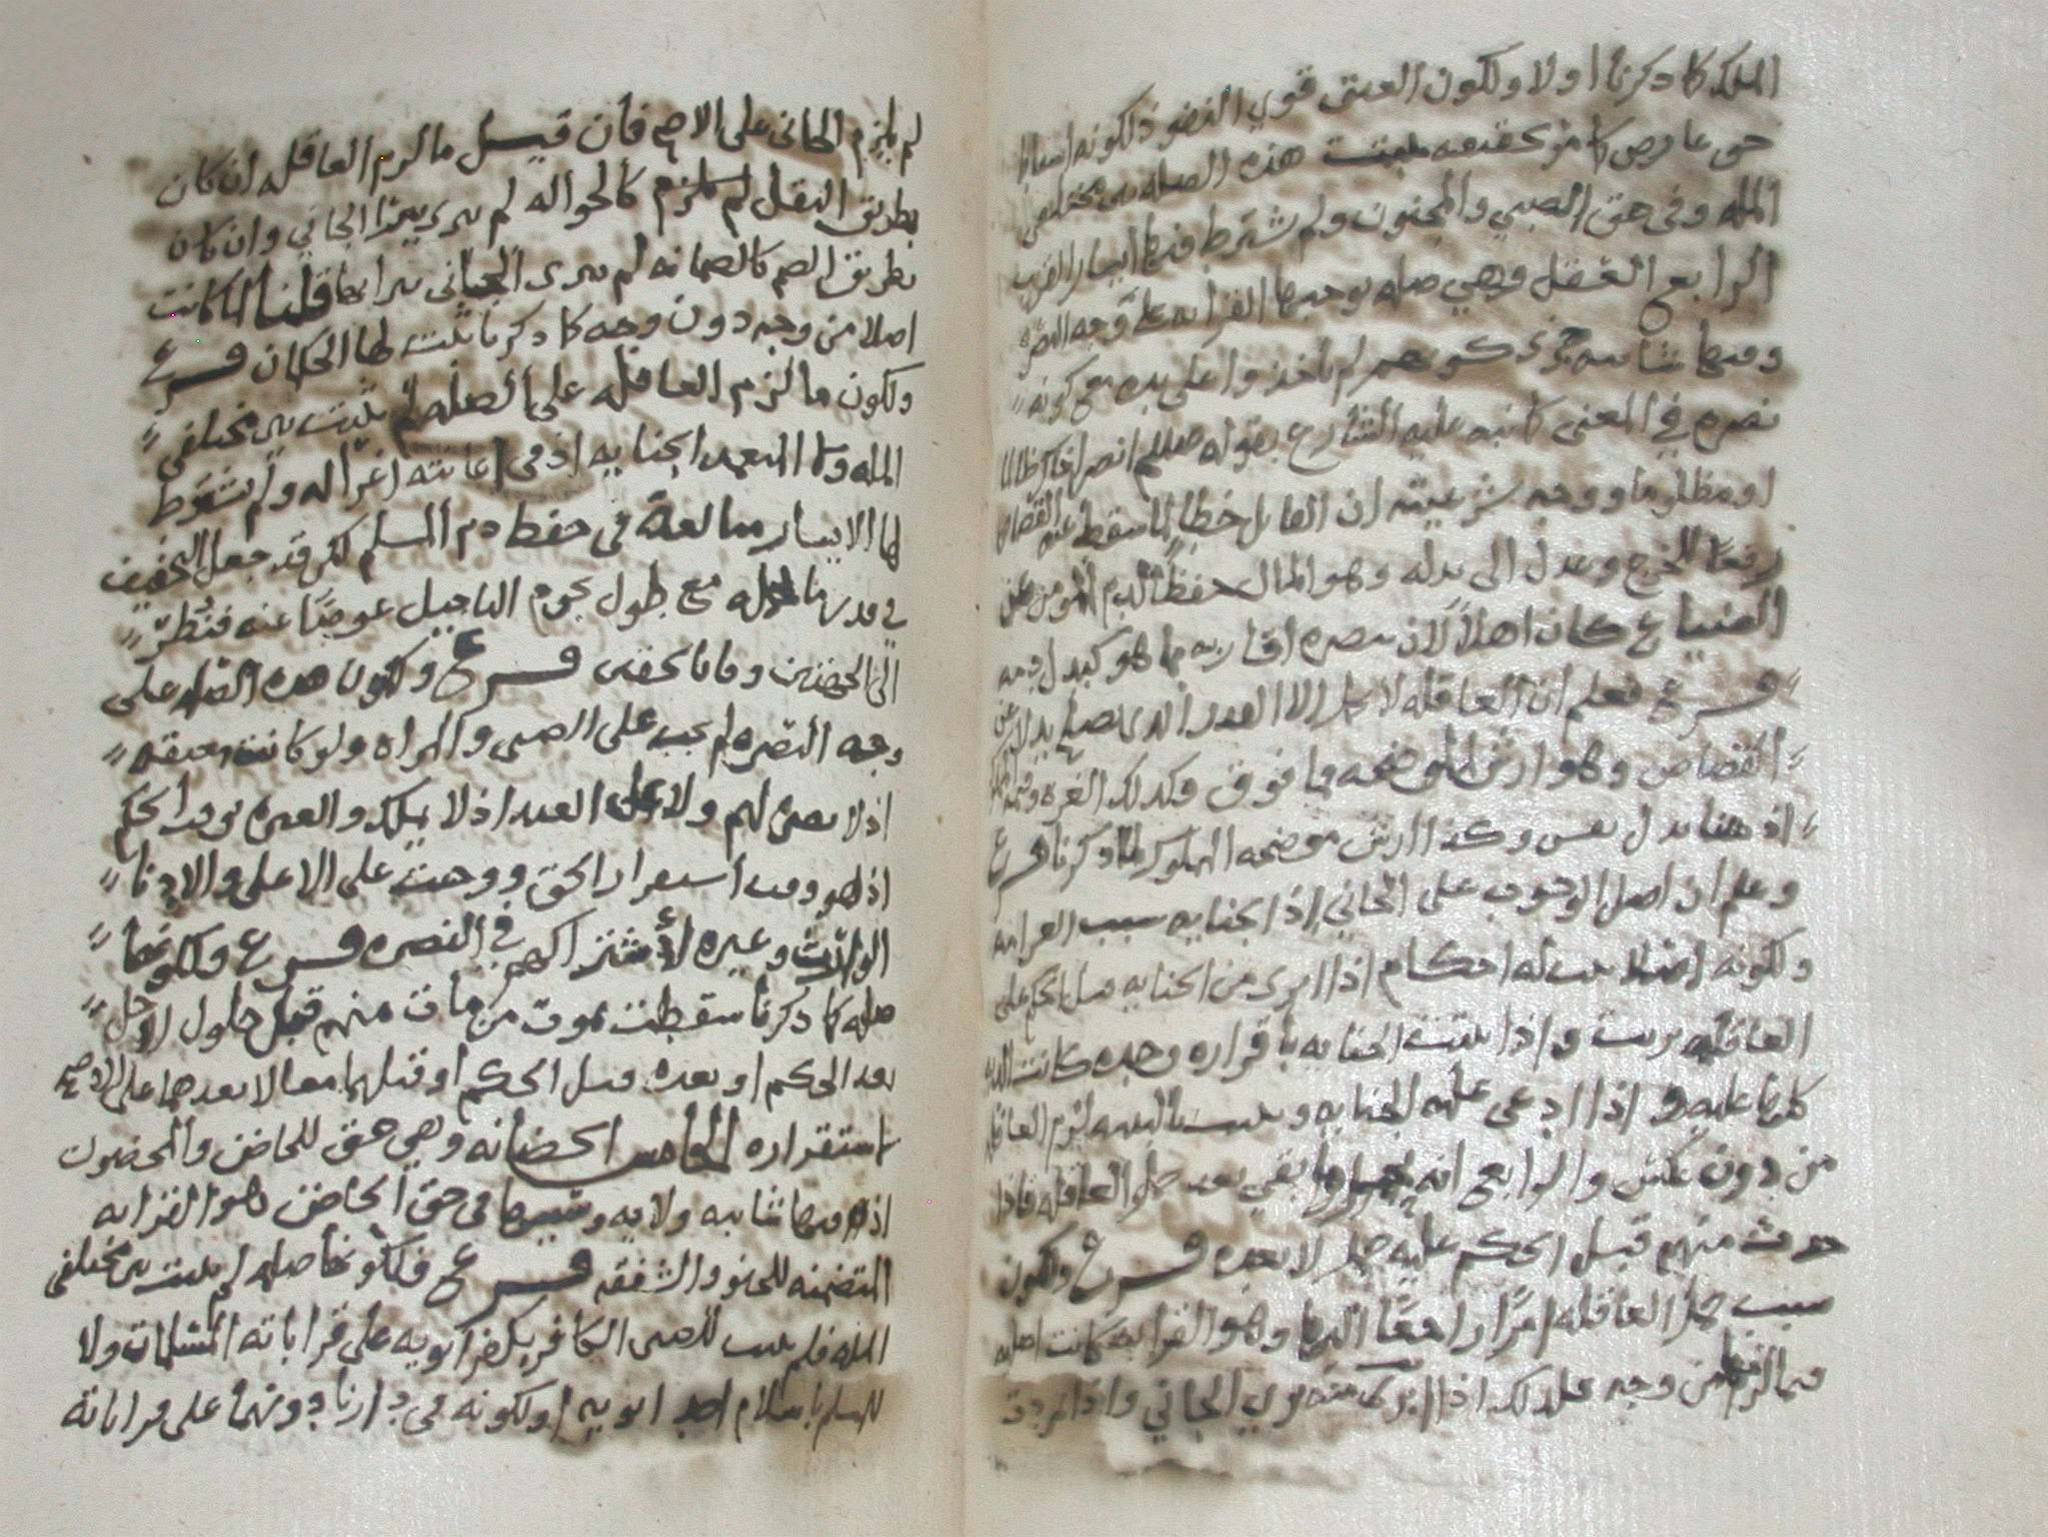 الملك كما ذكرنا اولا ولكون العتق قوي النفوذ لكونه اسقاطا
حق عاوض كا مر تحقيقه ثبتت هذه الصله بين مختلفي
المله وفي حق الصبي والمجنون ولم يشترط فيها ايسار القريب
الرابع العقل وهي صله توجبها القرابه على وجه النصره
وفيها شايبه لم ياخذوا على يده مع كونه
نصره في المعنى كما نبه عليه الشارع بقوله صللم انصر اخاك ظالما
او مظلوما ووجه شرعيته ان القاتل خطأ لما سقط عنه القصاص
رفعا للحرج وعدل الى بدله وهو المال حفظا لدم المومن عن
الضياع كان اهلا لان ينصره اقاربه بما هو كبدل دمه
فرع فعلم ان العاقله لا تحمل الا القدر الذي يصلح بدلا عن
القصاص وهو ارش الموضحه فما فوق وكذلك الغره
اذ هنا بدل نفس وكذا ارش موضحه المملوك لما ذكرنا فرع
وعلم ان اصل الوجوب على الجاني اذ الجنايه سبب الغرامه
ولكونه اصلا ثبت له احكام اذا ابرى من الجنايه قبل الحكم على
العاقله بريت واذا ثبتت الجنايه باقراره وحده كانت
عليه واذا ادعى عليهم الجنايه وثبتت بالبينه لزم العاقله
من دون عكس والرابع انه يحمل ما بقي بعد حمل العاقله فاذا
حدث منهم قبل الحكم عليه حمل لا بعده فرع ولكون
سبب حمل العاقله امرا راجعا اليها وهو القرابه كانت اصليه
فيما لزمها من وجه فلذلك اذا لم يبرى الجاني واذا
لم يلزم الجاني على الاصح فان قيل ما لزم العاقله ان كان
بطريق النقل لم يلزم كالحواله لم يبرى ببرا الجاني وان كان
بطريق الضم كالضمانه لم يبرى الجاني ببرايها قلنا لما كانت
اصلا من وجه دون وجه كما ذكرنا ثبت لها الحكمان فرع
ولكون ما لزم العاقله على الصله لم يثبت بين مختلفي
المله ولا المتعمد الجنايه اذ في اعانته اغرا له ولم يشترط
لها الايسار مبالغة في حفظ دم المسلم لكن قد جعل التخفيف
في قدر ما تحمله مع طول نجوم التاجيل عوضا عنه فنظر
الى الجهتين وفا بالحقين فرع ولكون هذه الصله على
وجه النصره لم تجب على الصبي والمراه ولو كانت معتقه
اذ لا نصره لهم ولا على العبد اذ لا يملك والعبره بوقت الحكم
اذ هو وقت استقرار الحق ووجبت على الاعلى والادنا
الوارث وغيره لاشتراكهم في النصره فرع ولكونها
صله كما ذكرنا سقطت بموت من مات منهم قبل حلول الاجل
بعد الحكم او بعده قبل الحكم او قبلهما معا لا بعدهما على الاصح
لاستقراره الخامس الحضانه وهي حق للحاضن والمحضون
اذ فيها شايبه ولايه وسببها في حق الحاضن هو القرابه
المتضمنه للحنو والشفقه فرع فلكونها صله لم يثبت بين مختلفي
المله فلم يثبت للصبي الكافر بكفر ابويه على قراباته المسلمات ولا
للمسلم باسلام احد ابويه او لكونه في دارنا دونهما على قراباته